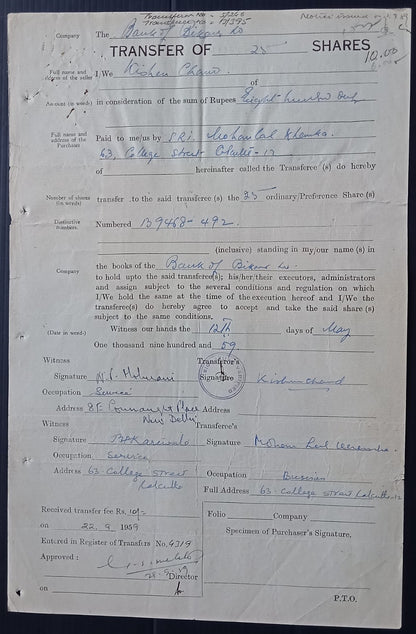 Company The Bank of Bikaner Ld
TRANSFER OF 25 SHARES
10.00
Full name and address of the seller I/We Kishen Chand
of
Amount (in words) in consideration of the sum of Rupees Eight hundred only
Full name and address of the Purchaser Paid to me/us by SRI Mohanlal Khemka
63, College Street Calcutta-12
of hereinafter called the Transferee (s) do hereby
Number of shares (in words) transfer to the said transferee (s) the 25 ordinary/Preference Share (s)
Distinctive numbers. Numbered 139468-492.
(inclusive) standing in my/our name (s) in
Company the books of the Bank of Bikaner Ld.
to hold upto the said transferee(s); his/her/their executors, administrators
and assign subject to the several conditions and regulation on which
I/We hold the same at the time of the execution hereof and I/We the
transferee(s) do hereby agree to accept and take the said share (s)
subject to the same conditions.
Witness our hands the 12th days of May
(Date in word) One thousand nine hundred and 59.
Witness Transferor's
Signature Signature Krishen Chand
Occupation Service
Address 8F Connaught Place Address
New Delhi
Witness Transferee's
Signature Signature Mohan Lal
Occupation Service
Address 63 College Street Occupation Business
Calcutta Full Address 63 College Street Calcutta-12
Received transfer fee Rs. 10/- Folio Company
on 22.9 1959 Specimen of Purchaser's Signature,
Entered in Register of Transfers No. 4319
Approved :
Director
on P.T.O.